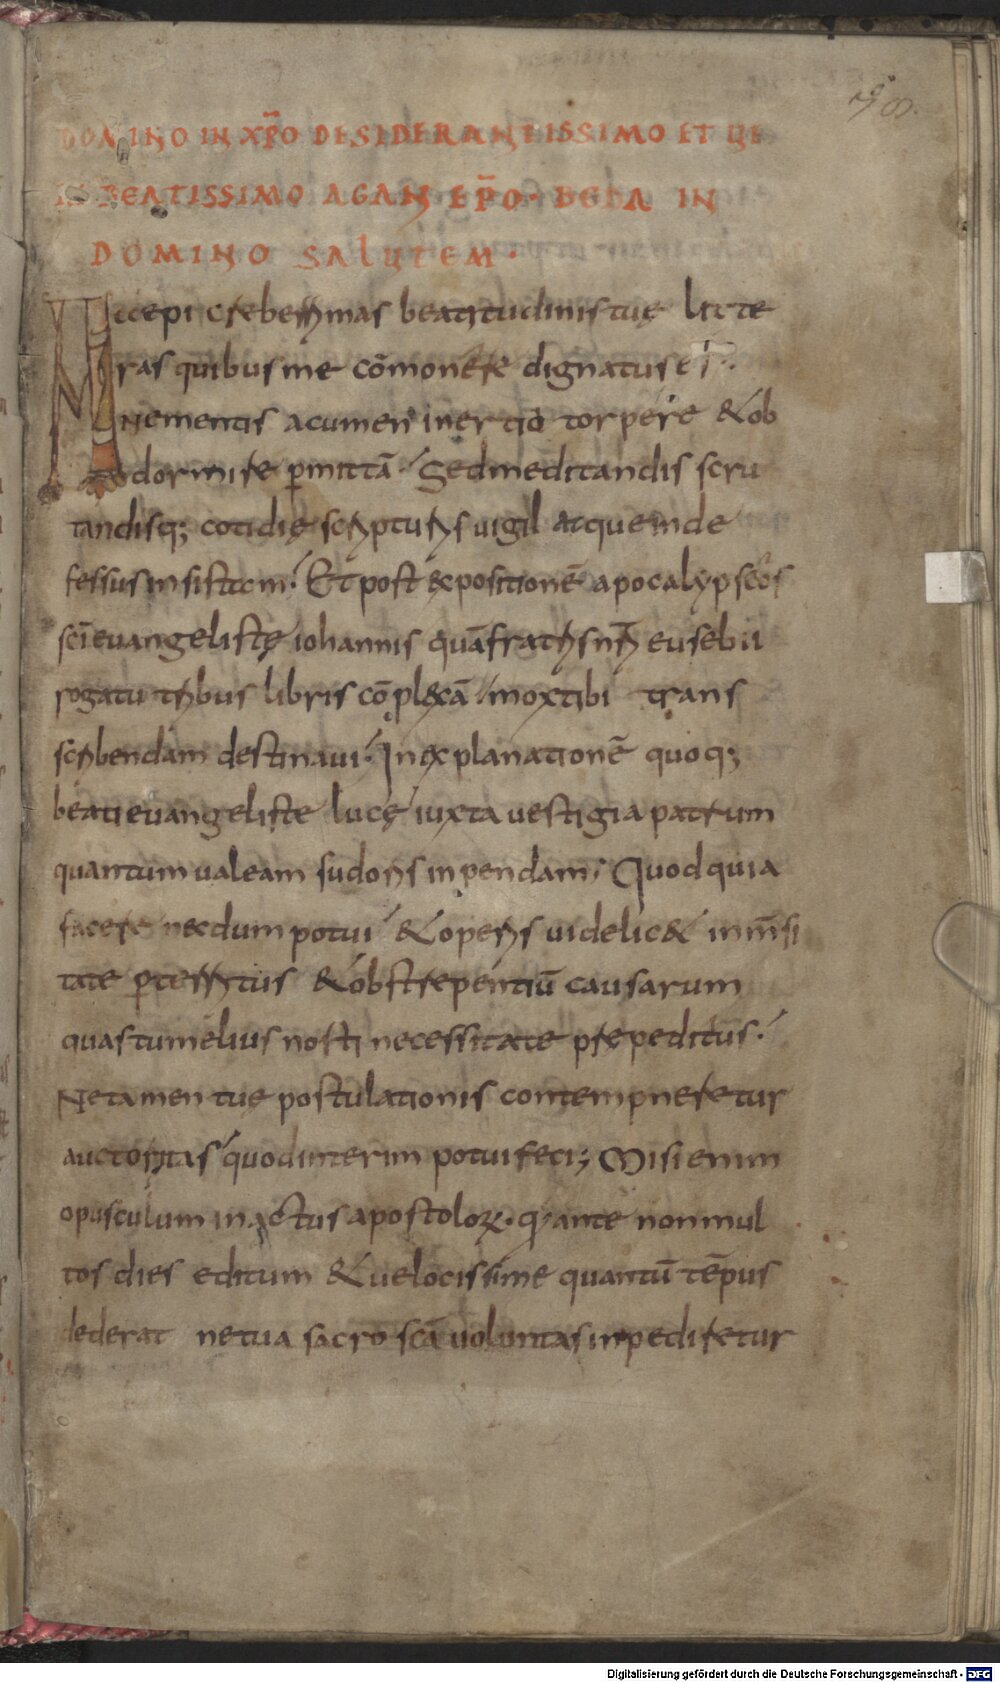 DOMINO IN XP̄O DESIDERANTISSIMO ET UE
RE BEATISSIMO ACAN EP̄O · BEDA IN
DOMINO SALUTEM ·
Accepi creberrimas beatitudinis tuę litte
ras quibus me cōmonere dignatus es ·
Ne mentis acumen inertia torpere & ob
dormire p̄mittā · Sed meditandis scru
tandisq; cotidię scripturis uigil atque inde
fessus insistam · Et post expositionē apocalypseos
sc̄i evangelistę iohannis quā fratris nr̄i eusebii
rogatu tribus libris cōplexā mox tibi trans
scribendam destinavi · In explanationē quoq;
beati evangeliste lucę iuxta vestigia patrum
quantum ualeam sudoris inpendam · Quod quia
facere necdum potui & operis uidelic& inm̄si
tate p̄territus & obstrepentiū causarum
quas tu melius nosti necessitate prepeditus ·
Ne tamen tuę postulationis contemneretur
auctoritas quod interim potui feci; Misi enim
opusculum in actus apostoloꝝ · q̄ ante non mul
tos dies editum & uelocissime quantū tēpus
dederat ne tua sacro scā uoluntas inpediretur
Digitalisierung gefördert durch die Deutsche Forschungsgemeinschaft - DFG